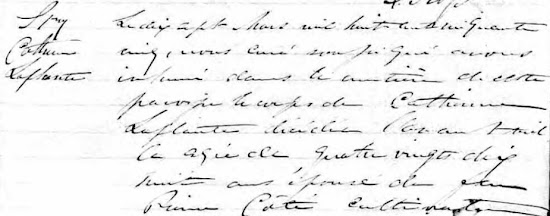 Spry
Catherine
Laplante
Le dix sept Mars mil huit cent cinquante
cinq, nous curé soussigné avons
inhumé dans le cimetière de cette
paroisse le corps de Catherine
Laplante décédée l'avant veil
le agée de quatre vingt dix
huit ans épouse de Jean
Pierre Côté cultivateur